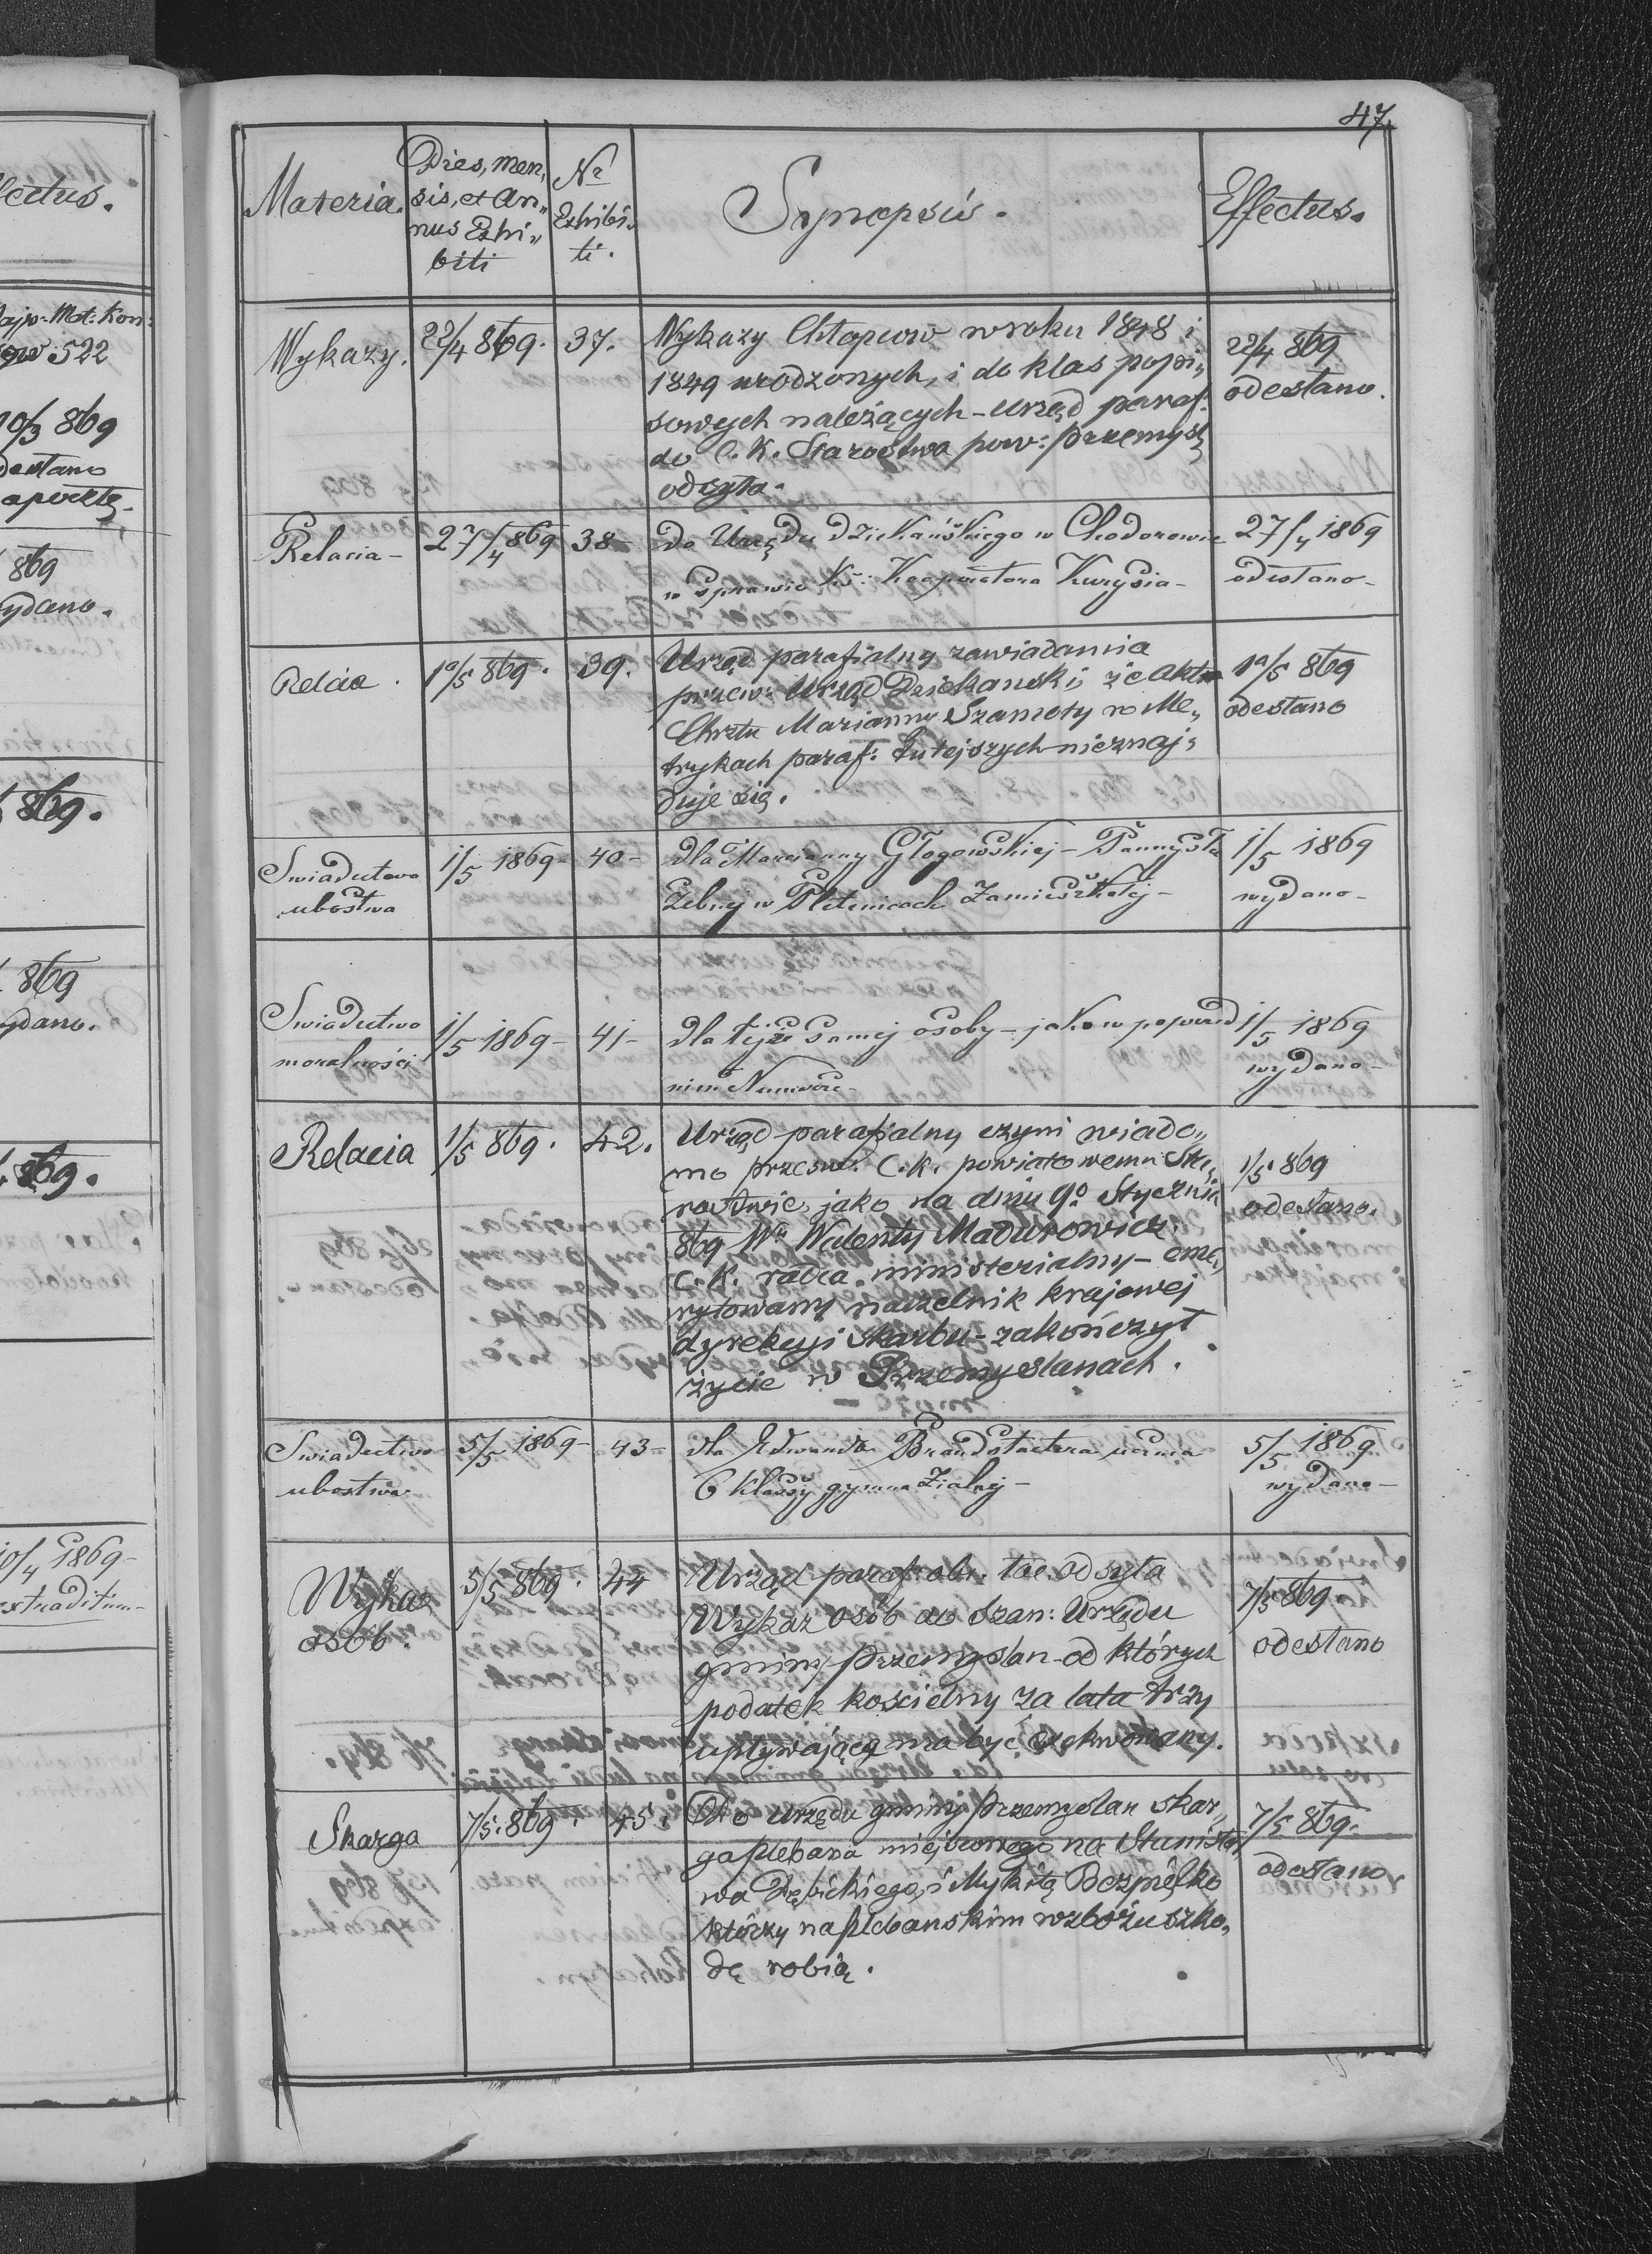 fectus.
ow 522
10/3 869
destano
869
ydano.
869.
869
ydano.
869.
10/4 1869-
extraditum-
47.
Materia.
Dies, men„
sis, et An„
nus Exhi„
biti
Nr
Exhibi„
ti.
Synopsis.
Effectus.
Wykazy.
22/4 869.
37.
Wykazy Chłopców w roku 1848 i
1849 urodzonych, i do klas popi„
sowych należących - Urząd paraf:
do C. K. Starostwa pow: Przemyśl
odsyła.
22/4 869
odesłano.
Relacia -
27/4 869
38-
do Urzędu dziekańskiego w Chodorowie
w sprawie Ks: Kooperatora Kurysia-
27/4 1869
odesłano-
Relcia.
1a/5 869.
39.
Urząd parafialny zawiadamia
przew: Urząd Dziekański, że akt
Chrztu Marianny Szamoty w Me„
trykach paraf: tutejszych nieznaj„
duje się.
1a/5 869
odesłano
Swiadectwo
ubostwa
1/5 1869-
40-
dla Maryanny Głogowskiej - Panny słu
żebnej w Pletenicach zamieszkałej-
1/5 1869
wydano-
Swiadectwo
moralności
1/5 1869-
41-
dla tejże samej osoby - jako w poprzed
nim Numerze-
1/5 1869
wydano-
Relacia
1/5 869.
42.
Urząd parafialny czyni wiado„
mo przesw: C. k. powiatowemu Sta„
rostwie, jako na dniu 9o Stycznia
869 Wy Walenty Madurowicz
c. k. radca ministerialny - eme„
rytowany naczelnik krajowej
dyrekcyi skarbu - zakończył
życie w Przemyslanach.
1/5 869
odesłano.
Swiadectwo
ubostwa
5/5 1869-
43-
dla Edwarda Brandstaetera ucznia
6 klassy gymnazialnej-
5/5 1869
wydano-
Wykaz
osób.
5/5 869.
44
Urząd paraf: obr. łac odsyła
Wykaz osób do Szan: Urzędu
gminy Przemyslan - od których
podatek kościelny za lata trzy
upływające ma być exekwowany.
7/5 869.
odesłano
Skarga
7/5. 869.
45.
Do Urzędu gminy Przemyslan skar„
ga plebana miejscowego na Stanisła
wa Dębickiego, i Mykitę
którzy na plebanskim wzbożu szko„
dę robią.
7/5 869.
odesłano.